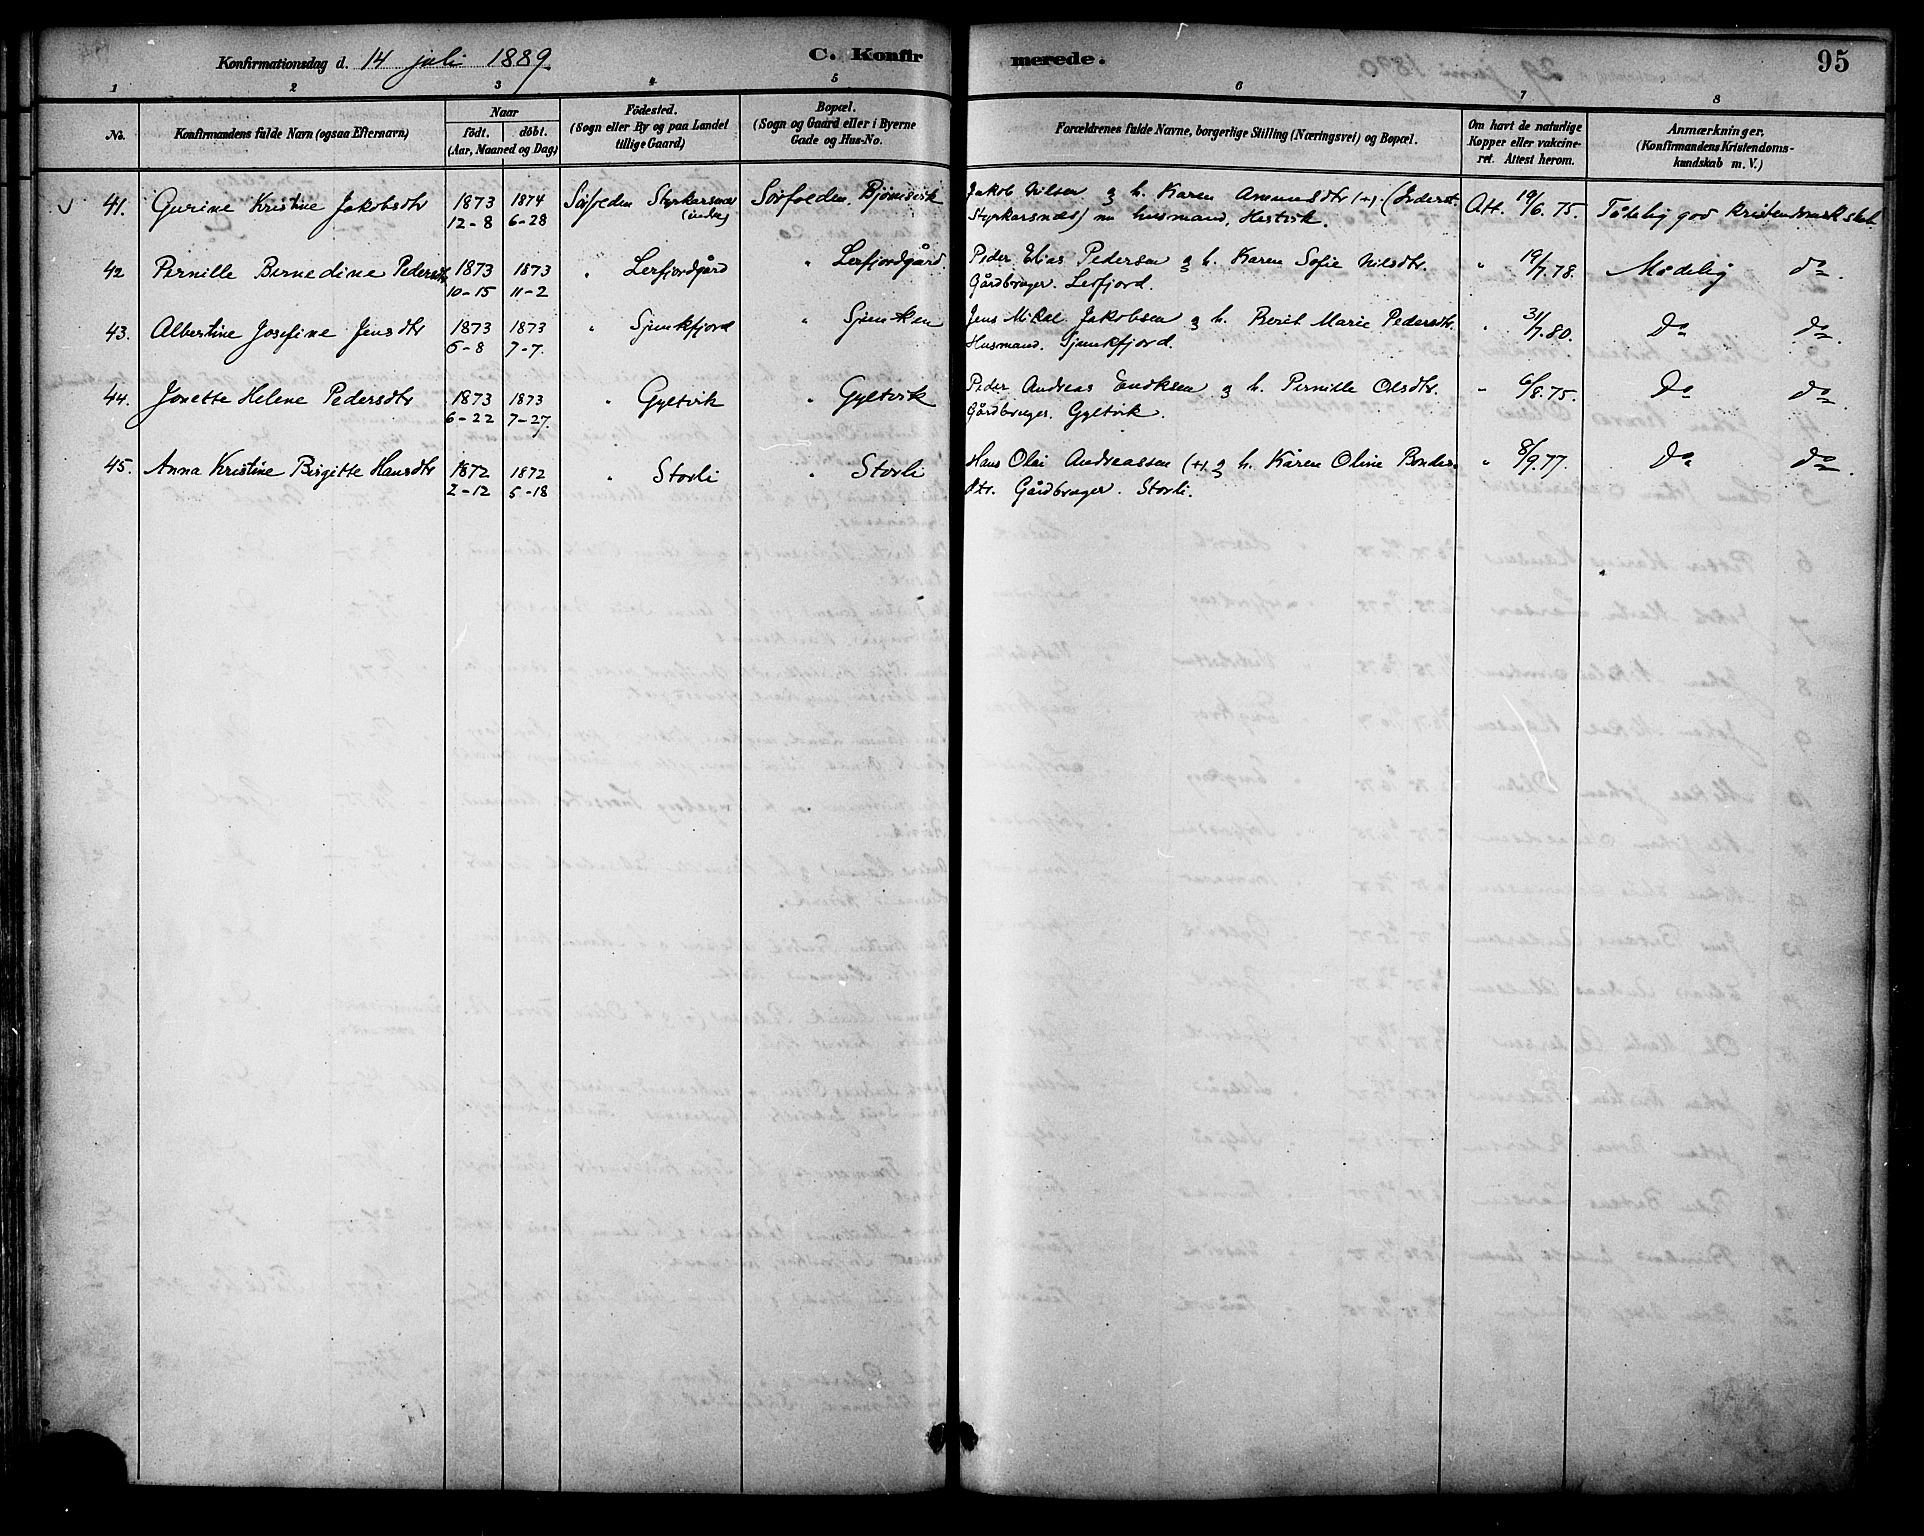 Konfirmationsdag d. 14 juli 1889. C. Konfirmerede. 95
1 2 3 4 5 6 7 8
No. Konfirmandens fulde Navn (ogsaa Efternavn) Naar födt. döbt. (Aar, Maaned og Dag) Födested. (Sogn eller By og paa Landet tillige Gaard) Bopæl. (Sogn og Gaard eller i Byerne Gade og Hus-No. Forældrenes fulde Navne, borgerlige Stilling (Næringsvei) og Bopæl. Om havt de naturlige Kopper eller vakcineret. Attest herom. Anmærkninger. (Konfirmandens Kristendomskundskab m. V.)
41. Gurine Kristine Jakobsdtr 1873 1874 Sörfolden Styrkarsnæs Sörfolden. Bjørnsvik Jakob Nilsen og h. Karen Amundsdtr (+). (Inderst
12-8 6-28 (inders) Styrkarsnæs) nu husmand, Hestvik. Att. 19/6. 75. Tålelig god kristendomskskab.
42 Pernille Bernedine Pedersdtr 1873 1873 " Lerfjordgård " Lerfjordgård Peder Elias Pedersen og h. Karen Sofie Nilsdtr. " 19/7.78. Mådelig do.
10-15 11-2 Gårdbruger. Lerfjord.
43. Albertine Josefine Jensdtr 1873 1873 " Sjunkfjord " Sjunken Jens Mikal Jakobsen og h. Berit Marie Pedersdtr. " 31/7.80. Do do.
6-8 7-7. Husmand. Sjunkfjord.
44. Jonette Helene Pedersdtr 1873 1873 " Gyltvik " Gyltvik Peder Andreas Enoksen og h. Pernille Olsdtr. " 6/8.75. Do do.
6-22 7-27. Gårdbruger. Gyltvik.
45. Anna Kristine Birgitte Hansdtr 1872 1872 " Storli " Storli Hans Olai Andreassen (+) og h. Karen Oline Ponders- " 8/9.77. Do do.
2-12 5-18 dtr. Gårdbruger. Storli.